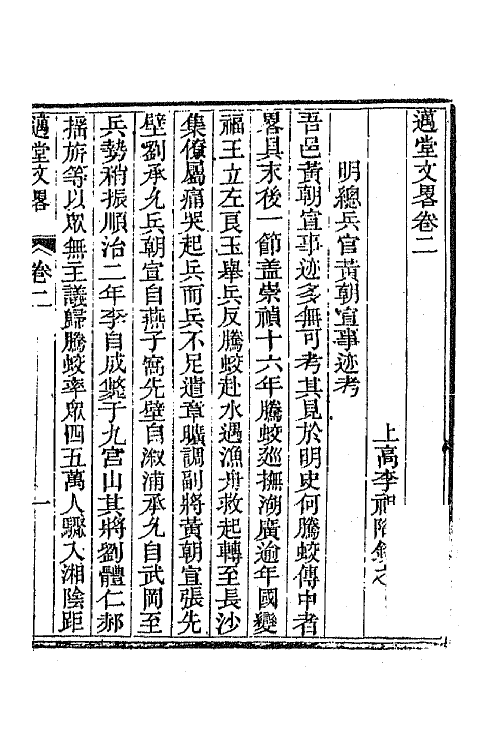 邁堂文畧卷二
上高李祖陶
明總兵官黃朝宣事迹考
吾邑黃朝宣事迹多無可考其見於明史何騰蛟傳中者
畧具末後一節盖崇禎十六年騰蛟廵撫湖廣逾年國變
福王立左良玉舉兵反騰蛟赴水遇漁舟救起轉至長沙
集僚屬痛哭起兵而兵不足遣章曠調副將黃朝宣張先
壁劉承允兵朝宣自燕子窩先壁自溆浦承允自武岡至
兵勢稍振順治二年李自成斃于九宮山其將劉體仁郝
揺旂等以眾無主議歸騰蛟率眾四五萬人驟入湘陰距
邁堂文畧
卷二
一